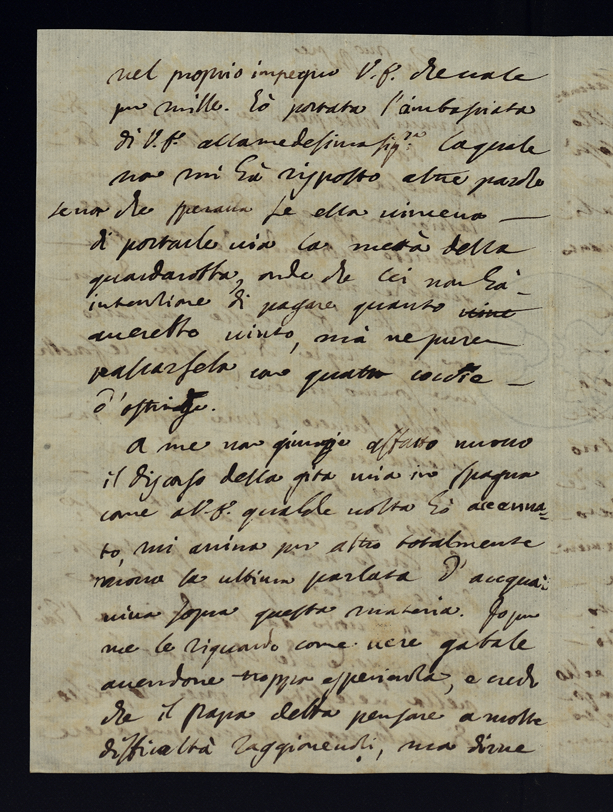 nel proprio impegno V.S. che vale
per mille. Hò portata l'ambasciata
di V.S. alla medesima Sig.ra la quale
non mi hà risposto altre parole
se non che sperava se ella vinceva —
di portarle via la metà della
guardarobba, onde che lei non hà
intenzione di pagare quanto vinc
averebbe vinto, mà ne pure
passarsela con quattro coccie
d'ostriche.
A me non giunge affatto nuovo
il discorso della gita mia in Spagna
come a V.S. qualche volta hò accenna=
to, mi arriva per altro totalmente
nuova la ultima parlata d'acqua
viva sopra questa materia. Io per
me le riguardo come vere gabale
avendone troppa esperienza, e credo
che il Papa debba pensare a molte
difficoltà raggionevoli, ma dirne